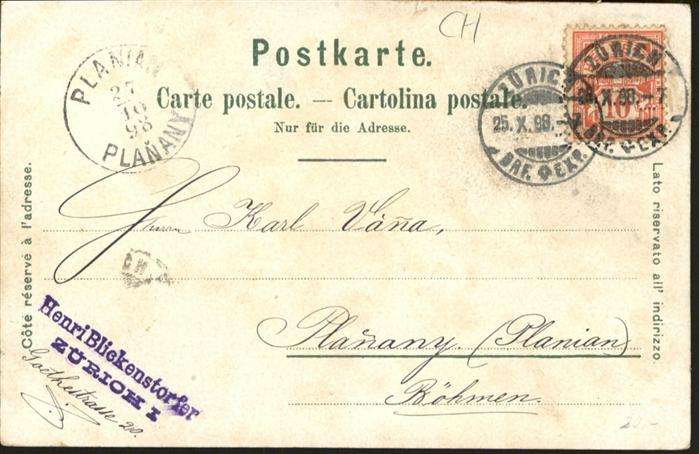 CH
Postkarte.
Carte postale. — Cartolina postale.
Nur für die Adresse.
PLANIAN
27
10
98
PLAŇANY
ZÜRICH
25.X.98.
BRF. EXP.
ZÜRICH
X.98. 7
BRF. EXP.
10
Côté réservé à l'adresse.
Lato riservato all' indirizzo.
Herrn Karl Váňa,
Plaňany. (Planian)
Böhmen.
Henri Blickenstorfer
ZÜRICH I
Goethestrasse 20.